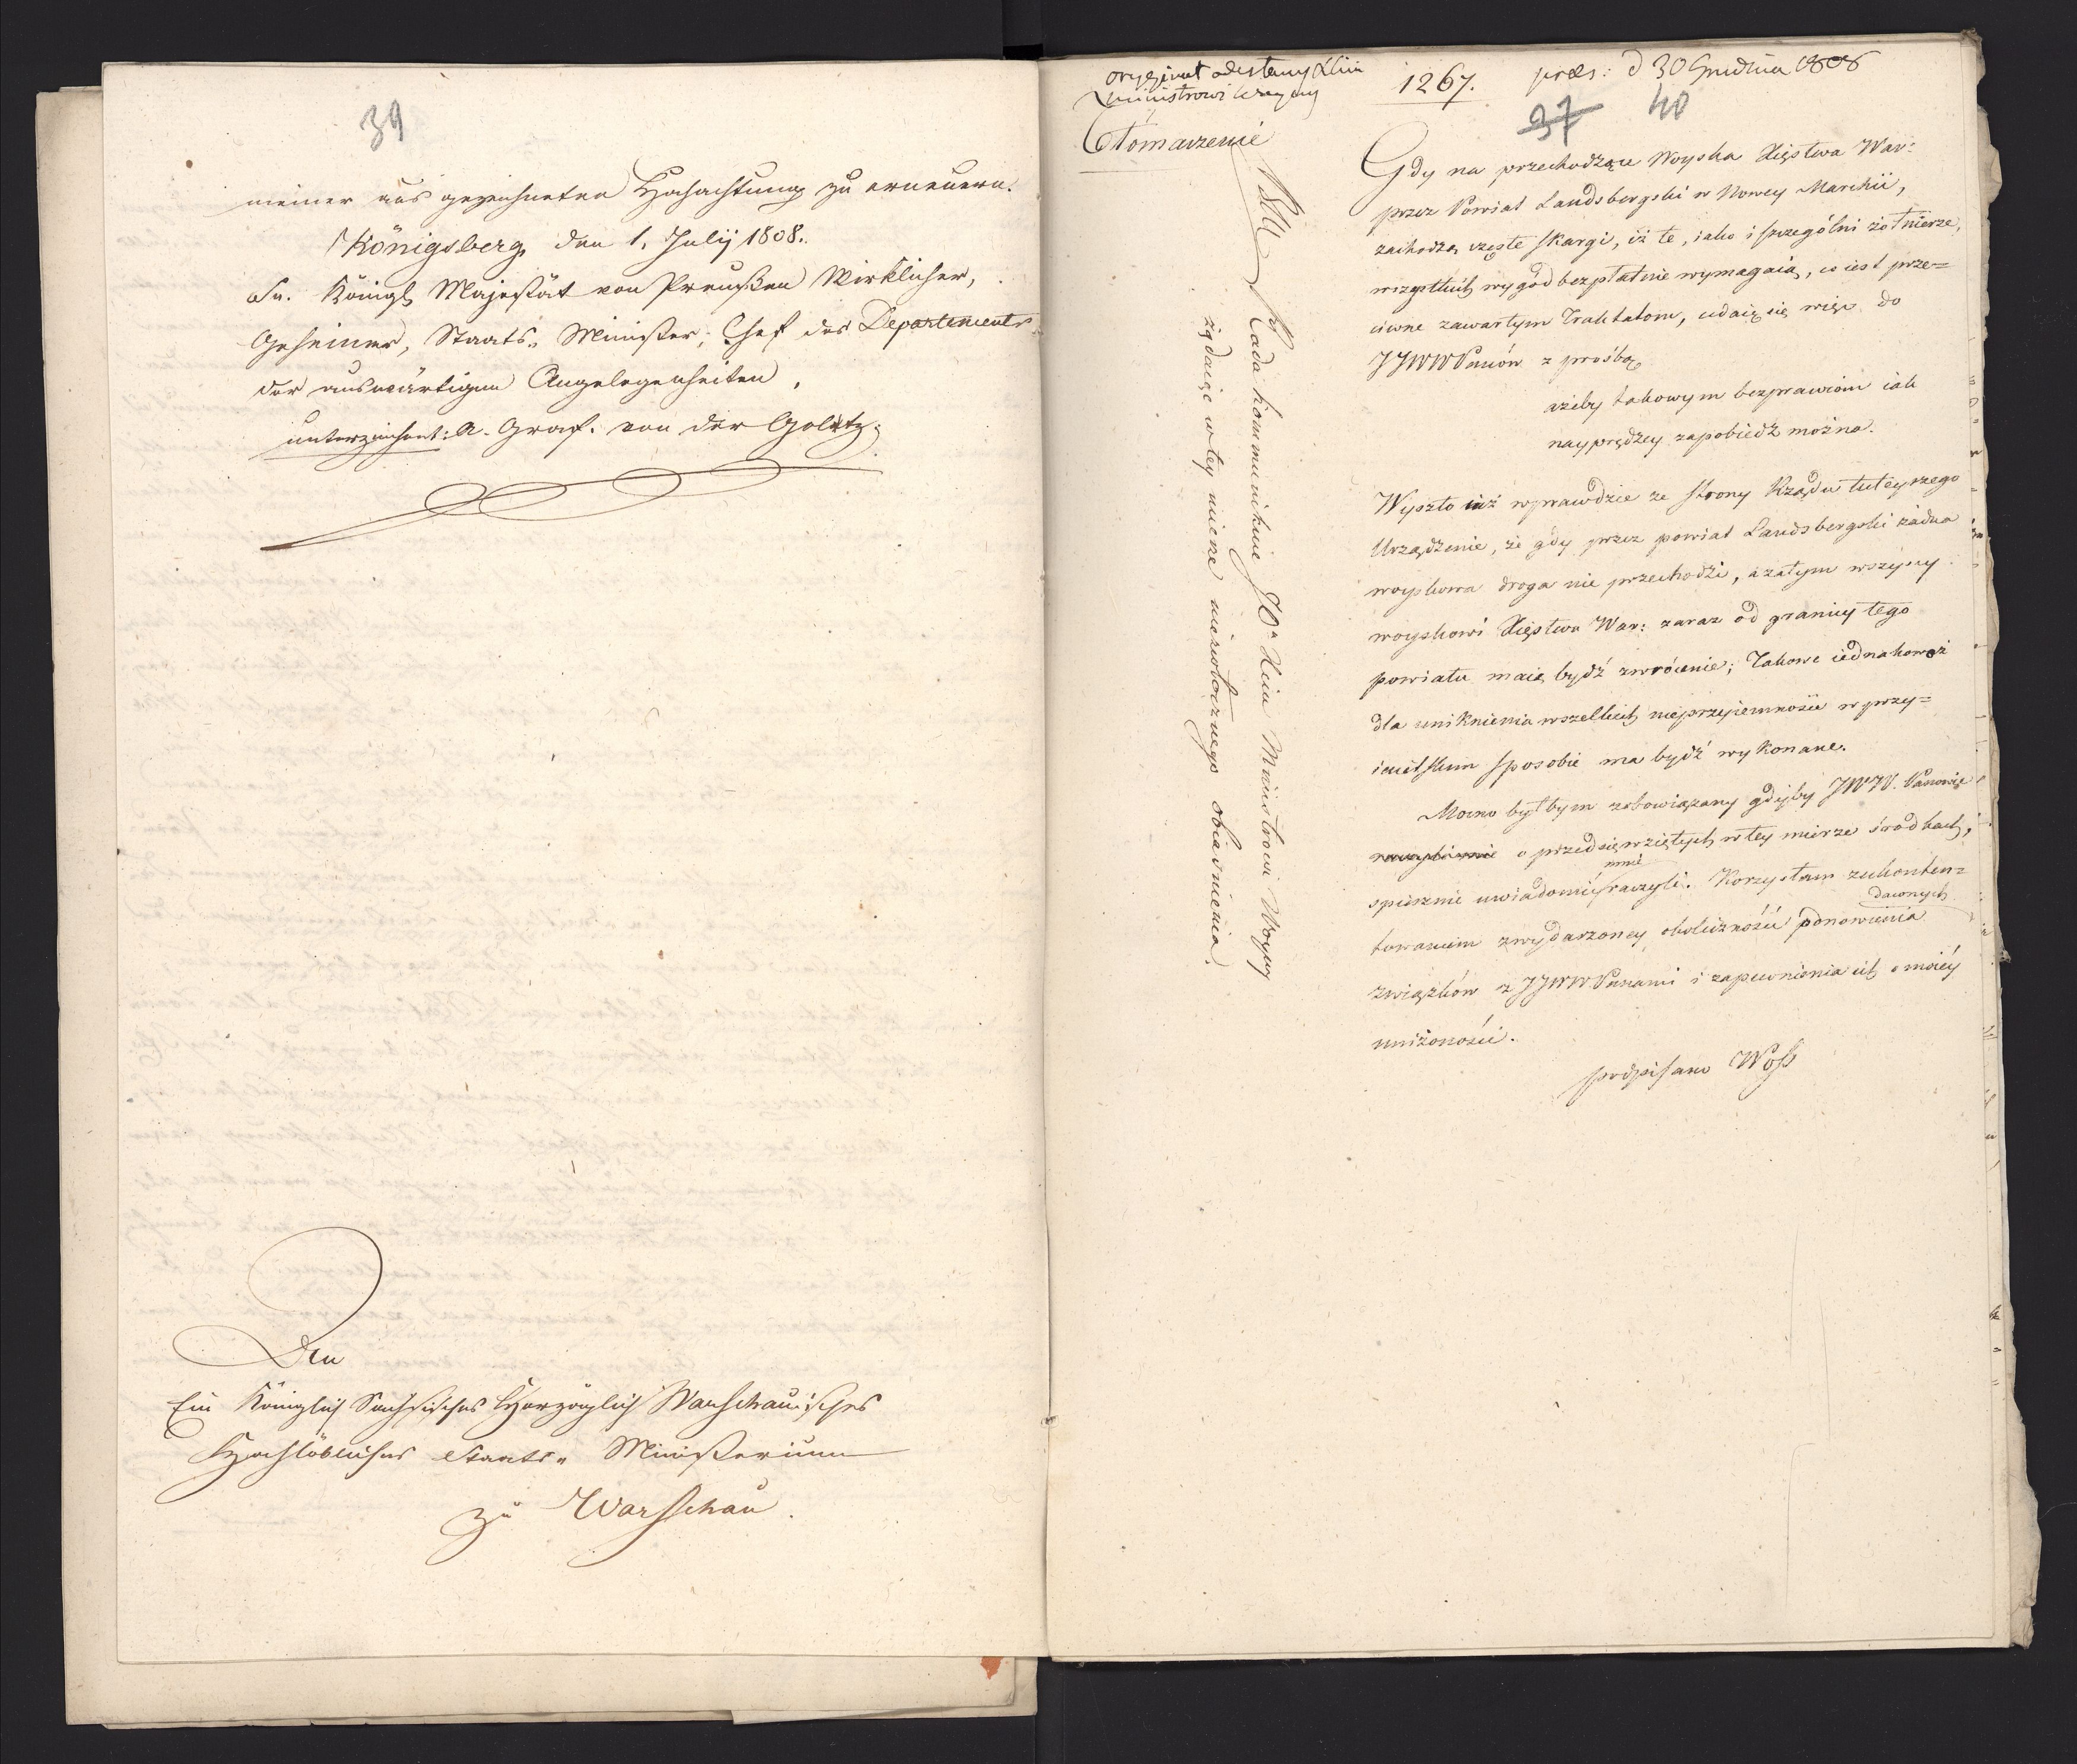 39
meiner aus gezeichneten Hochachtung zu erneuern.
Königsberg, den 1. Julij 1808.
Sr. Königl. Majestät von Preußen Wirklicher,
Geheimer, Staats- Minister, Chef des Departements
der auswärtigen Angelegenheiten,
unterzeichnet: A. Graf. von der Goltz.
Den
Ein Königlich Sächsisches Herzoglich Warschauisches
Hochlöbliches Staats- Ministerium
zu Warschau.
oryginał odesłany
Ministrowi Woyny
Tłómaczenie
1267. præs: d 30 Grudnia 1808
37 40
Gdy na przechodzące Woyska Xięstwa War:
przez Powiat Landsbergski w Nowey Marchii,
zachodzą częste skargi, iż te, iako i szczególni żołnierze,
wszystkich wygód bezpłatnie wymagaią, co iest prze=
ciwne zawartym Traktatom, udaię się więc do
JJWW Panów z prośbą
ażeby takowym bezprawiom iak
nayprędzey zapobiedz można.
Wyszło iuż wprawdzie ze strony Rządu tuteyszego
Urządzenie, że gdy przez powiat Landsbergski żadna
woyskowa droga nie przechodzi, a zatym wszyscy
woyskowi Xięstwa War: zaraz od granicy tego
powiatu maią bydź zwrócenie; Takowe iednakowoż
dla uniknienia wszelkich nieprzyiemności w przy=
iacielskim sposobie ma bydź wykonane.
Mocno byłbym zobowiązany gdyby JWW. Panowie
o przedsięwziętych w tey mierze środkach,
spiesznie uwiadomić mnie raczyli. Korzystam z ukonten=
towaniem z wydarzoney okoliczności ponowienia dawnych
związków z JJWW Panami i zapewnienia ich o moiéy
uniżoności.
podpisano Woss
Rada kommunikuie JOn Xciu Ministrowi Woyny
żądaiąc w tey mierze niezwłocznego obiaśnienia.